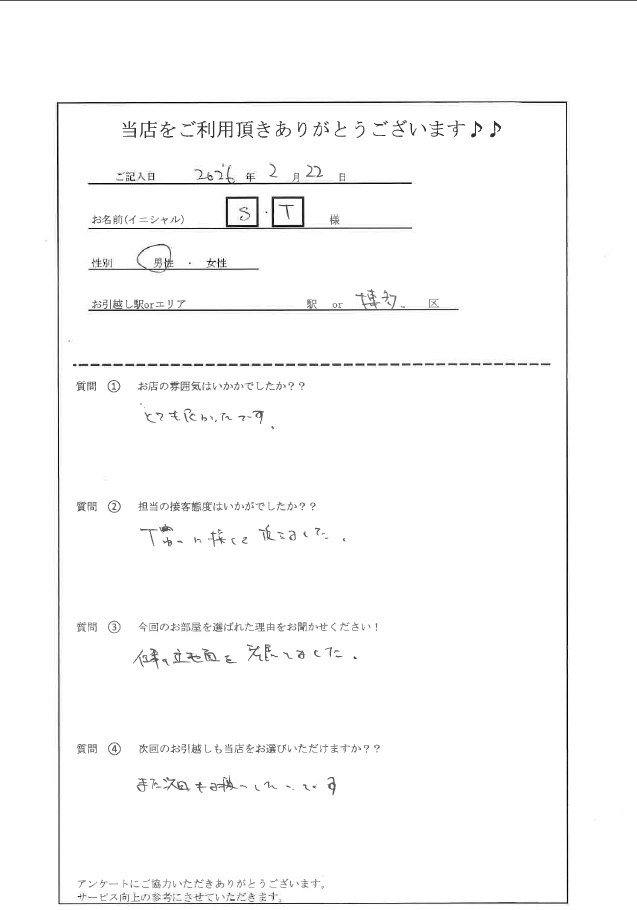 当店をご利用頂きありがとうございます♪♪
ご記入日 2026 年 2 月 22 日
お名前(イニシャル) S ・ T 様
性別 男性 ・ 女性
お引越し駅orエリア 駅 or 博多 区
質問 ① お店の雰囲気はいかかでしたか??
とても良かったです。
質問 ② 担当の接客態度はいかがでしたか??
丁寧に接して頂きました。
質問 ③ 今回のお部屋を選ばれた理由をお聞かせください!
仕事の立地面を しました。
質問 ④ 次回のお引越しも当店をお選びいただけますか??
また次回もお願いしたいです
アンケートにご協力いただきありがとうございます。
サービス向上の参考にさせていただきます。